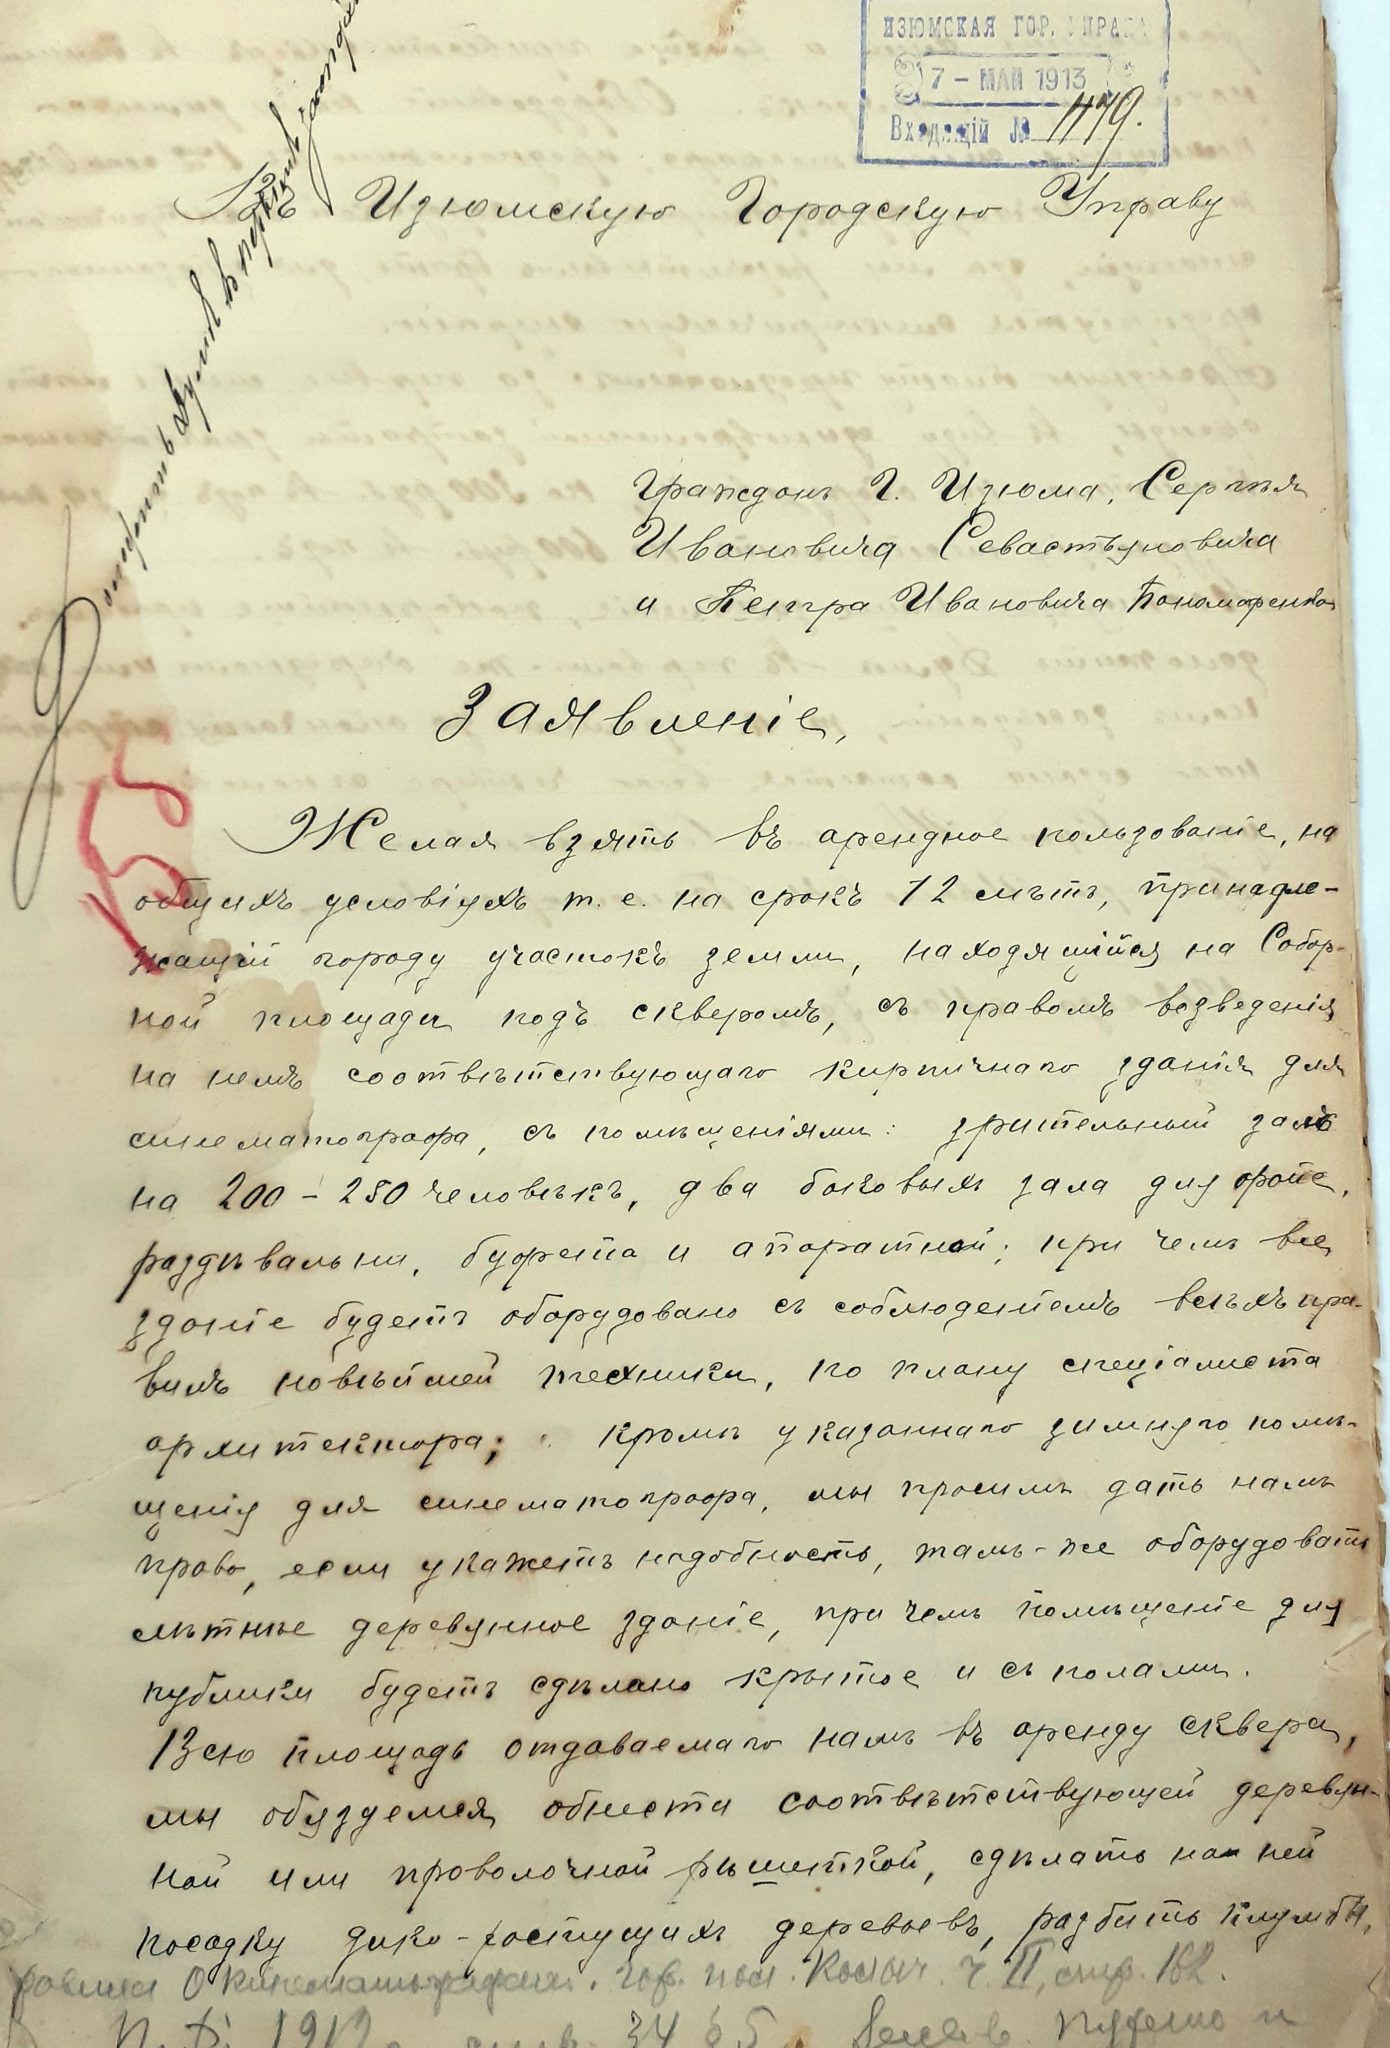 ИЗЮМСКАЯ ГОР. УПРАВА
7 - МАЙ 1913
Входящій № 1179.
Въ Изюмскую Городскую Управу
Гражданъ Г. Изюма, Сергѣя
Ивановича Севастьяновича
и Петра Ивановича Пономаренко
Заявленіе,
Желая взять въ арендное пользованіе, на
общихъ условіяхъ т. е. на срокъ 12 лѣтъ, принадле-
жащій городу участокъ земли, находящійся на Собор-
ной площади подъ скверомъ, съ правомъ возведенія
на немъ соотвѣтствующаго кирпичнаго зданія для
синематографа, съ помѣщеніями: зрительный залъ
на 200 - 250 человѣкъ, два боковыхъ зала для фойе,
раздѣвальни, буфета и апаратной; при чемъ все
зданіе будетъ оборудовано съ соблюденіемъ всѣхъ пра-
вилъ новѣйшей техники, по плану спеціалиста
архитектора; кромѣ указаннаго зимняго помѣ-
щенія для синематографа, мы просимъ дать намъ
право, если укажетъ надобность, тамъ-же оборудовать
лѣтнее деревянное зданіе, при чемъ помѣщеніе для
публики будетъ сдѣлано крытое и съ полами.
Всю площадь отдаваемаго намъ въ аренду сквера,
мы обязуемся обнести соотвѣтствующей деревян-
ной или проволочной рѣшеткой, сдѣлать на ней
посадку дико-ростущихъ деревьевъ, разбить клумбы,
О кинематографахъ. Гор. пол. ч. II, стр. 182.
1912 стр. 34 65
Доложить Думѣ въ первомъ